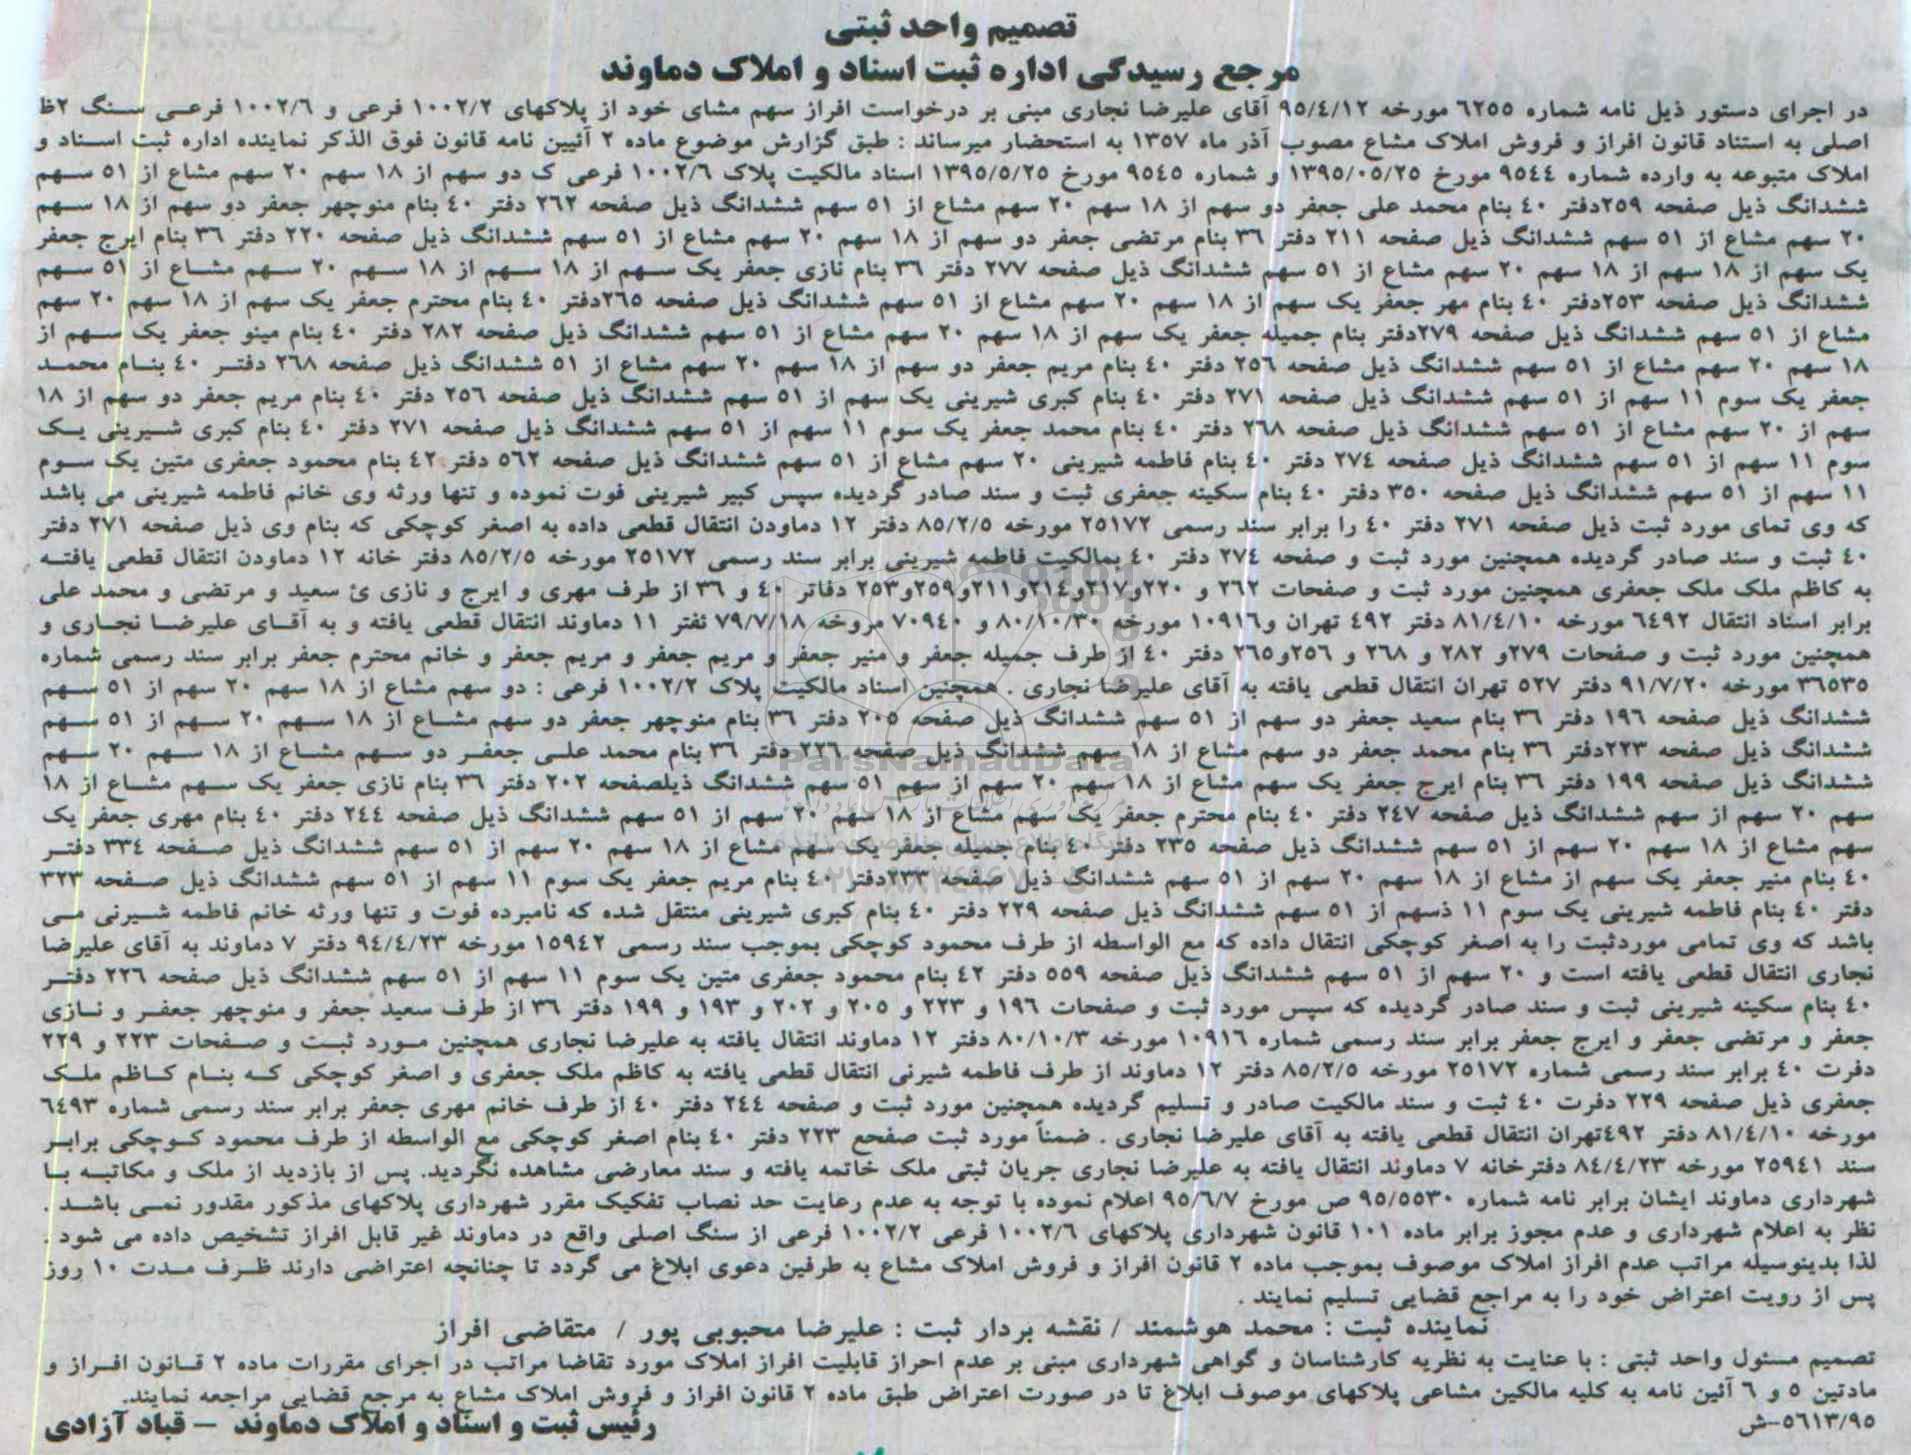 تصمیم واحد ثبتی
مرجع رسیدگی اداره ثبت اسناد و املاک دماوند
در اجرای دستور ذیل نامه شماره ٦٢٥٥ مورخه ٩٥/٤/١٢ آقای علیرضا نجاری مبنی بر درخواست افراز سهم مشای خود از پلاکهای ١٠٠٢/٢ فرعی و ١٠٠٢/٦ فرعی سنگ ٢ظ
اصلی به استناد قانون افراز و فروش املاک مشاع مصوب آذر ماه ١٣٥٧ به استحضار میرساند : طبق گزارش موضوع ماده ٢ آئیین نامه قانون فوق الذکر نماینده اداره ثبت اسناد و
املاک متبوعه به وارده شماره ٩٥٤٤ مورخ ١٣٩٥/٠٥/٢٥ و شماره ٩٥٤٥ مورخ ١٣٩٥/٥/٢٥ اسناد مالکیت پلاک ١٠٠٢/٦ فرعی ک دو سهم از ١٨ سهم ٢٠ سهم مشاع از ٥١ سهم
ششدانگ ذیل صفحه ٢٥٩دفتر ٤٠ بنام محمد علی جعفر دو سهم از ١٨ سهم ٢٠ سهم مشاع از ٥١ سهم ششدانگ ذیل صفحه ٢٦٢ دفتر ٤٠ بنام منوچهر جعفر دو سهم از ١٨ سهم
٢٠ سهم مشاع از ٥١ سهم ششدانگ ذیل صفحه ٢١١ دفتر ٣٦ بنام مرتضی جعفر دو سهم از ١٨ سهم ٢٠ سهم مشاع از ٥١ سهم ششدانگ ذیل صفحه ٢٢٠ دفتر ٣٦ بنام ایرج جعفر
یک سهم از ١٨ سهم از ١٨ سهم ٢٠ سهم مشاع از ٥١ سهم ششدانگ ذیل صفحه ٢٧٧ دفتر ٣٦ بنام نازی جعفر یک سهم از ١٨ سهم از ١٨ سهم ٢٠ سهم مشاع از ٥١ سهم
ششدانگ ذیل صفحه ٢٥٣دفتر ٤٠ بنام مهر جعفر یک سهم از ١٨ سهم ٢٠ سهم مشاع از ٥١ سهم ششدانگ ذیل صفحه ٢٦٥دفتر ٤٠ بنام محترم جعفر یک سهم از ١٨ سهم ٢٠ سهم
مشاع از ٥١ سهم ششدانگ ذیل صفحه ٢٧٩دفتر بنام جمیله جعفر یک سهم از ١٨ سهم ٢٠ سهم مشاع از ٥١ سهم ششدانگ ذیل صفحه ٢٨٢ دفتر ٤٠ بنام مینو جعفر یک سهم از
١٨ سهم ٢٠ سهم مشاع از ٥١ سهم ششدانگ ذیل صفحه ٢٥٦ دفتر ٤٠ بنام مریم جعفر دو سهم از ١٨ سهم ٢٠ سهم مشاع از ٥١ ششدانگ ذیل صفحه ٢٦٨ دفتر ٤٠ بنام محمد
جعفر یک سوم ١١ سهم از ٥١ سهم ششدانگ ذیل صفحه ٢٧١ دفتر ٤٠ بنام کبری شیرینی یک سهم از ٥١ سهم ششدانگ ذیل صفحه ٢٥٦ دفتر ٤٠ بنام مریم جعفر دو سهم از ١٨
سهم از ٢٠ سهم مشاع از ٥١ سهم ششدانگ ذیل صفحه ٢٦٨ دفتر ٤٠ بنام محمد جعفر یک سوم ١١ سهم از ٥١ سهم ششدانگ ذیل صفحه ٢٧١ دفتر ٤٠ بنام کبری شیرینی یک
سوم ١١ سهم از ٥١ سهم ششدانگ ذیل صفحه ٢٧٤ دفتر ٤٠ بنام فاطمه شیرینی ٢٠ سهم مشاع از ٥١ سهم ششدانگ ذیل صفحه ٥٦٢ دفتر ٤٢ بنام محمود جعفری متین یک سوم
١١ سهم از ٥١ سهم ششدانگ ذیل صفحه ٣٥٠ دفتر ٤٠ بنام سکینه جعفری ثبت و سند صادر گردیده سپس کبیر شیرینی فوت نموده و تنها ورثه وی خانم فاطمه شیرینی می باشد
که وی تمای مورد ثبت ذیل صفحه ٢٧١ دفتر ٤٠ را برابر سند رسمی ٢٥١٧٢ مورخه ٨٥/٢/٥ دفتر ١٢ دماودن انتقال قطعی داده به اصغر کوچکی که بنام وی ذیل صفحه ٢٧١ دفتر
٤٠ ثبت و سند صادر گردیده همچنین مورد ثبت و صفحه ٢٧٤ دفتر ٤٠ بمالکیت فاطمه شیرینی برابر سند رسمی ٢٥١٧٢ مورخه ٨٥/٢/٥ دفتر خانه ١٢ دماودن انتقال قطعی یافته
به کاظم ملک ملک جعفری همچنین مورد ثبت و صفحات ٢٦٢ و ٢٢٠و٢١٧و٢١٤و٢١١و٢٥٩و٢٥٣ دفاتر ٤٠ و ٣٦ از طرف مهری و ایرج و نازی ئ سعید و مرتضی و محمد علی
برابر اسناد انتقال ٦٤٩٢ مورخه ٨١/٤/١٠ دفتر ٤٩٢ تهران و١٠٩١٦ مورخه ٨٠/١٠/٣٠ و ٧٠٩٤٠ مروخه ٧٩/٧/١٨ ثفتر ١١ دماوند انتقال قطعی یافته و به آقای علیرضا نجاری و
همچنین مورد ثبت و صفحات ٢٧٩و ٢٨٢ و ٢٦٨ و ٢٥٦و٢٦٥ دفتر ٤٠ از طرف جمیله جعفر و منیر جعفر و مریم جعفر و مریم جعفر و خانم محترم جعفر برابر سند رسمی شماره
٣٦٥٣٥ مورخه ٩١/٧/٢٠ دفتر ٥٢٧ تهران انتقال قطعی یافته به آقای علیرضا نجاری . همچنین اسناد مالکیت پلاک ١٠٠٢/٢ فرعی : دو سهم مشاع از ١٨ سهم ٢٠ سهم از ٥١ سهم
ششدانگ ذیل صفحه ١٩٦ دفتر ٣٦ بنام سعید جعفر دو سهم از ٥١ سهم ششدانگ ذیل صفحه ٢٠٥ دفتر ٣٦ بنام منوچهر جعفر دو سهم مشاع از ١٨ سهم ٢٠ سهم از ٥١ سهم
ششدانگ ذیل صفحه ٢٢٣دفتر ٣٦ بنام محمد جعفر دو سهم مشاع از ١٨ سهم ششدانگ ذیل صفحه ٢٢٦ دفتر ٣٦ بنام محمد علی جعفر دو سهم مشاع از ١٨ سهم ٢٠ سهم
ششدانگ ذیل صفحه ١٩٩ دفتر ٣٦ بنام ایرج جعفر یک سهم مشاع از ١٨ سهم ٢٠ سهم از سهم ٥١ سهم ششدانگ ذیلصفحه ٢٠٢ دفتر ٣٦ بنام نازی جعفر یک سهم مشاع از ١٨
سهم ٢٠ سهم از سهم ششدانگ ذیل صفحه ٢٤٧ دفتر ٤٠ بنام محترم جعفر یک سهم مشاع از ١٨ سهم ٢٠ سهم از ٥١ سهم ششدانگ ذیل صفحه ٢٤٤ دفتر ٤٠ بنام مهری جعفر یک
سهم مشاع از ١٨ سهم ٢٠ سهم از ٥١ سهم ششدانگ ذیل صفحه ٢٣٥ دفتر ٤٠ بنام جمیله جعفر یک سهم مشاع از ١٨ سهم ٢٠ سهم از ٥١ سهم ششدانگ ذیل صفحه ٣٣٤ دفتر
٤٠ بنام منیر جعفر یک سهم از مشاع از ١٨ سهم ٢٠ سهم از ٥١ سهم ششدانگ ذیل صفحه ٢٣٣دفتر ٤٠ بنام مریم جعفر یک سوم ١١ سهم از ٥١ سهم ششدانگ ذیل صفحه ٣٢٣
دفتر ٤٠ بنام فاطمه شیرینی یک سوم ١١ ذسهم از ٥١ سهم ششدانگ ذیل صفحه ٢٢٩ دفتر ٤٠ بنام کبری شیرینی منتقل شده که نامبرده فوت و تنها ورثه خانم فاطمه شیرنی می
باشد که وی تمامی موردثبت را به اصغر کوچکی انتقال داده که مع الواسطه از طرف محمود کوچکی بموجب سند رسمی ١٥٩٤٢ مورخه ٩٤/٤/٢٣ دفتر ٧ دماوند به آقای علیرضا
نجاری انتقال قطعی یافته است و ٢٠ سهم از ٥١ سهم ششدانگ ذیل صفحه ٥٥٩ دفتر ٤٢ بنام محمود جعفری متین یک سوم ١١ سهم از ٥١ سهم ششدانگ ذیل صفحه ٢٢٦ دفتر
٤٠ بنام سکینه شیرینی ثبت و سند صادر گردیده که سپس مورد ثبت و صفحات ١٩٦ و ٢٢٣ و ٢٠٥ و ٢٠٢ و ١٩٣ و ١٩٩ دفتر ٣٦ از طرف سعید جعفر و منوچهر جعفر و نازی
جعفر و مرتضی جعفر و ایرج جعفر برابر سند رسمی شماره ١٠٩١٦ مورخه ٨٠/١٠/٣ دفتر ١٢ دماوند انتقال یافته به علیرضا نجاری همچنین مورد ثبت و صفحات ٢٢٣ و ٢٢٩
دفرت ٤٠ برابر سند رسمی شماره ٢٥١٧٢ مورخه ٨٥/٢/٥ دفتر ١٢ دماوند از طرف فاطمه شیرنی انتقال قطعی یافته به کاظم ملک جعفری و اصغر کوچکی که بنام کاظم ملک
جعفری ذیل صفحه ٢٢٩ دفرت ٤٠ ثبت و سند مالکیت صادر و تسلیم گردیده همچنین مورد ثبت و صفحه ٢٤٤ دفتر ٤٠ از طرف خانم مهری جعفر برابر سند رسمی شماره ٦٤٩٣
مورخه ٨١/٤/١٠ دفتر ٤٩٢تهران انتقال قطعی یافته به آقای علیرضا نجاری . ضمناً مورد ثبت صفحع ٢٢٣ دفتر ٤٠ بنام اصغر کوچکی مع الواسطه از طرف محمود کوچکی برابر
سند ٢٥٩٤١ مورخه ٨٤/٤/٢٣ دفترخانه ٧ دماوند انتقال یافته به علیرضا نجاری جریان ثبتی ملک خاتمه یافته و سند معارضی مشاهده نگردید. پس از بازدید از ملک و مکاتبه با
شهرداری دماوند ایشان برابر نامه شماره ٩٥/٥٥٣٠ ص مورخ ٩٥/٦/٧ اعلام نموده با توجه به عدم رعایت حد نصاب تفکیک مقرر شهرداری پلاکهای مذکور مقدور نمی باشد .
نظر به اعلام شهرداری و عدم مجوز برابر ماده ١٠١ قانون شهرداری پلاکهای ١٠٠٢/٦ فرعی ١٠٠٢/٢ فرعی از سنگ اصلی واقع در دماوند غیر قابل افراز تشخیص داده می شود .
لذا بدینوسیله مراتب عدم افراز املاک موصوف بموجب ماده ٢ قانون افراز و فروش املاک مشاع به طرفین دعوی ابلاغ می گردد تا چنانچه اعتراضی دارند ظرف مدت ١٠ روز
پس از رویت اعتراض خود را به مراجع قضایی تسلیم نمایند .
نماینده ثبت : محمد هوشمند / نقشه بردار ثبت : علیرضا محبوبی پور / متقاضی افراز
تصمیم مسئول واحد ثبتی : با عنایت به نظریه کارشناسان و گواهی شهرداری مبنی بر عدم احراز قابلیت افراز املاک مورد تقاضا مراتب در اجرای مقررات ماده ٢ قانون افراز و
مادتین ٥ و ٦ آئین نامه به کلیه مالکین مشاعی پلاکهای موصوف ابلاغ تا در صورت اعتراض طبق ماده ٢ قانون افراز و فروش املاک مشاع به مرجع قضایی مراجعه نمایند.
رئیس ثبت و اسناد و املاک دماوند – قباد آزادی
٥٦١٣/٩٥-ش
ParsNamadData